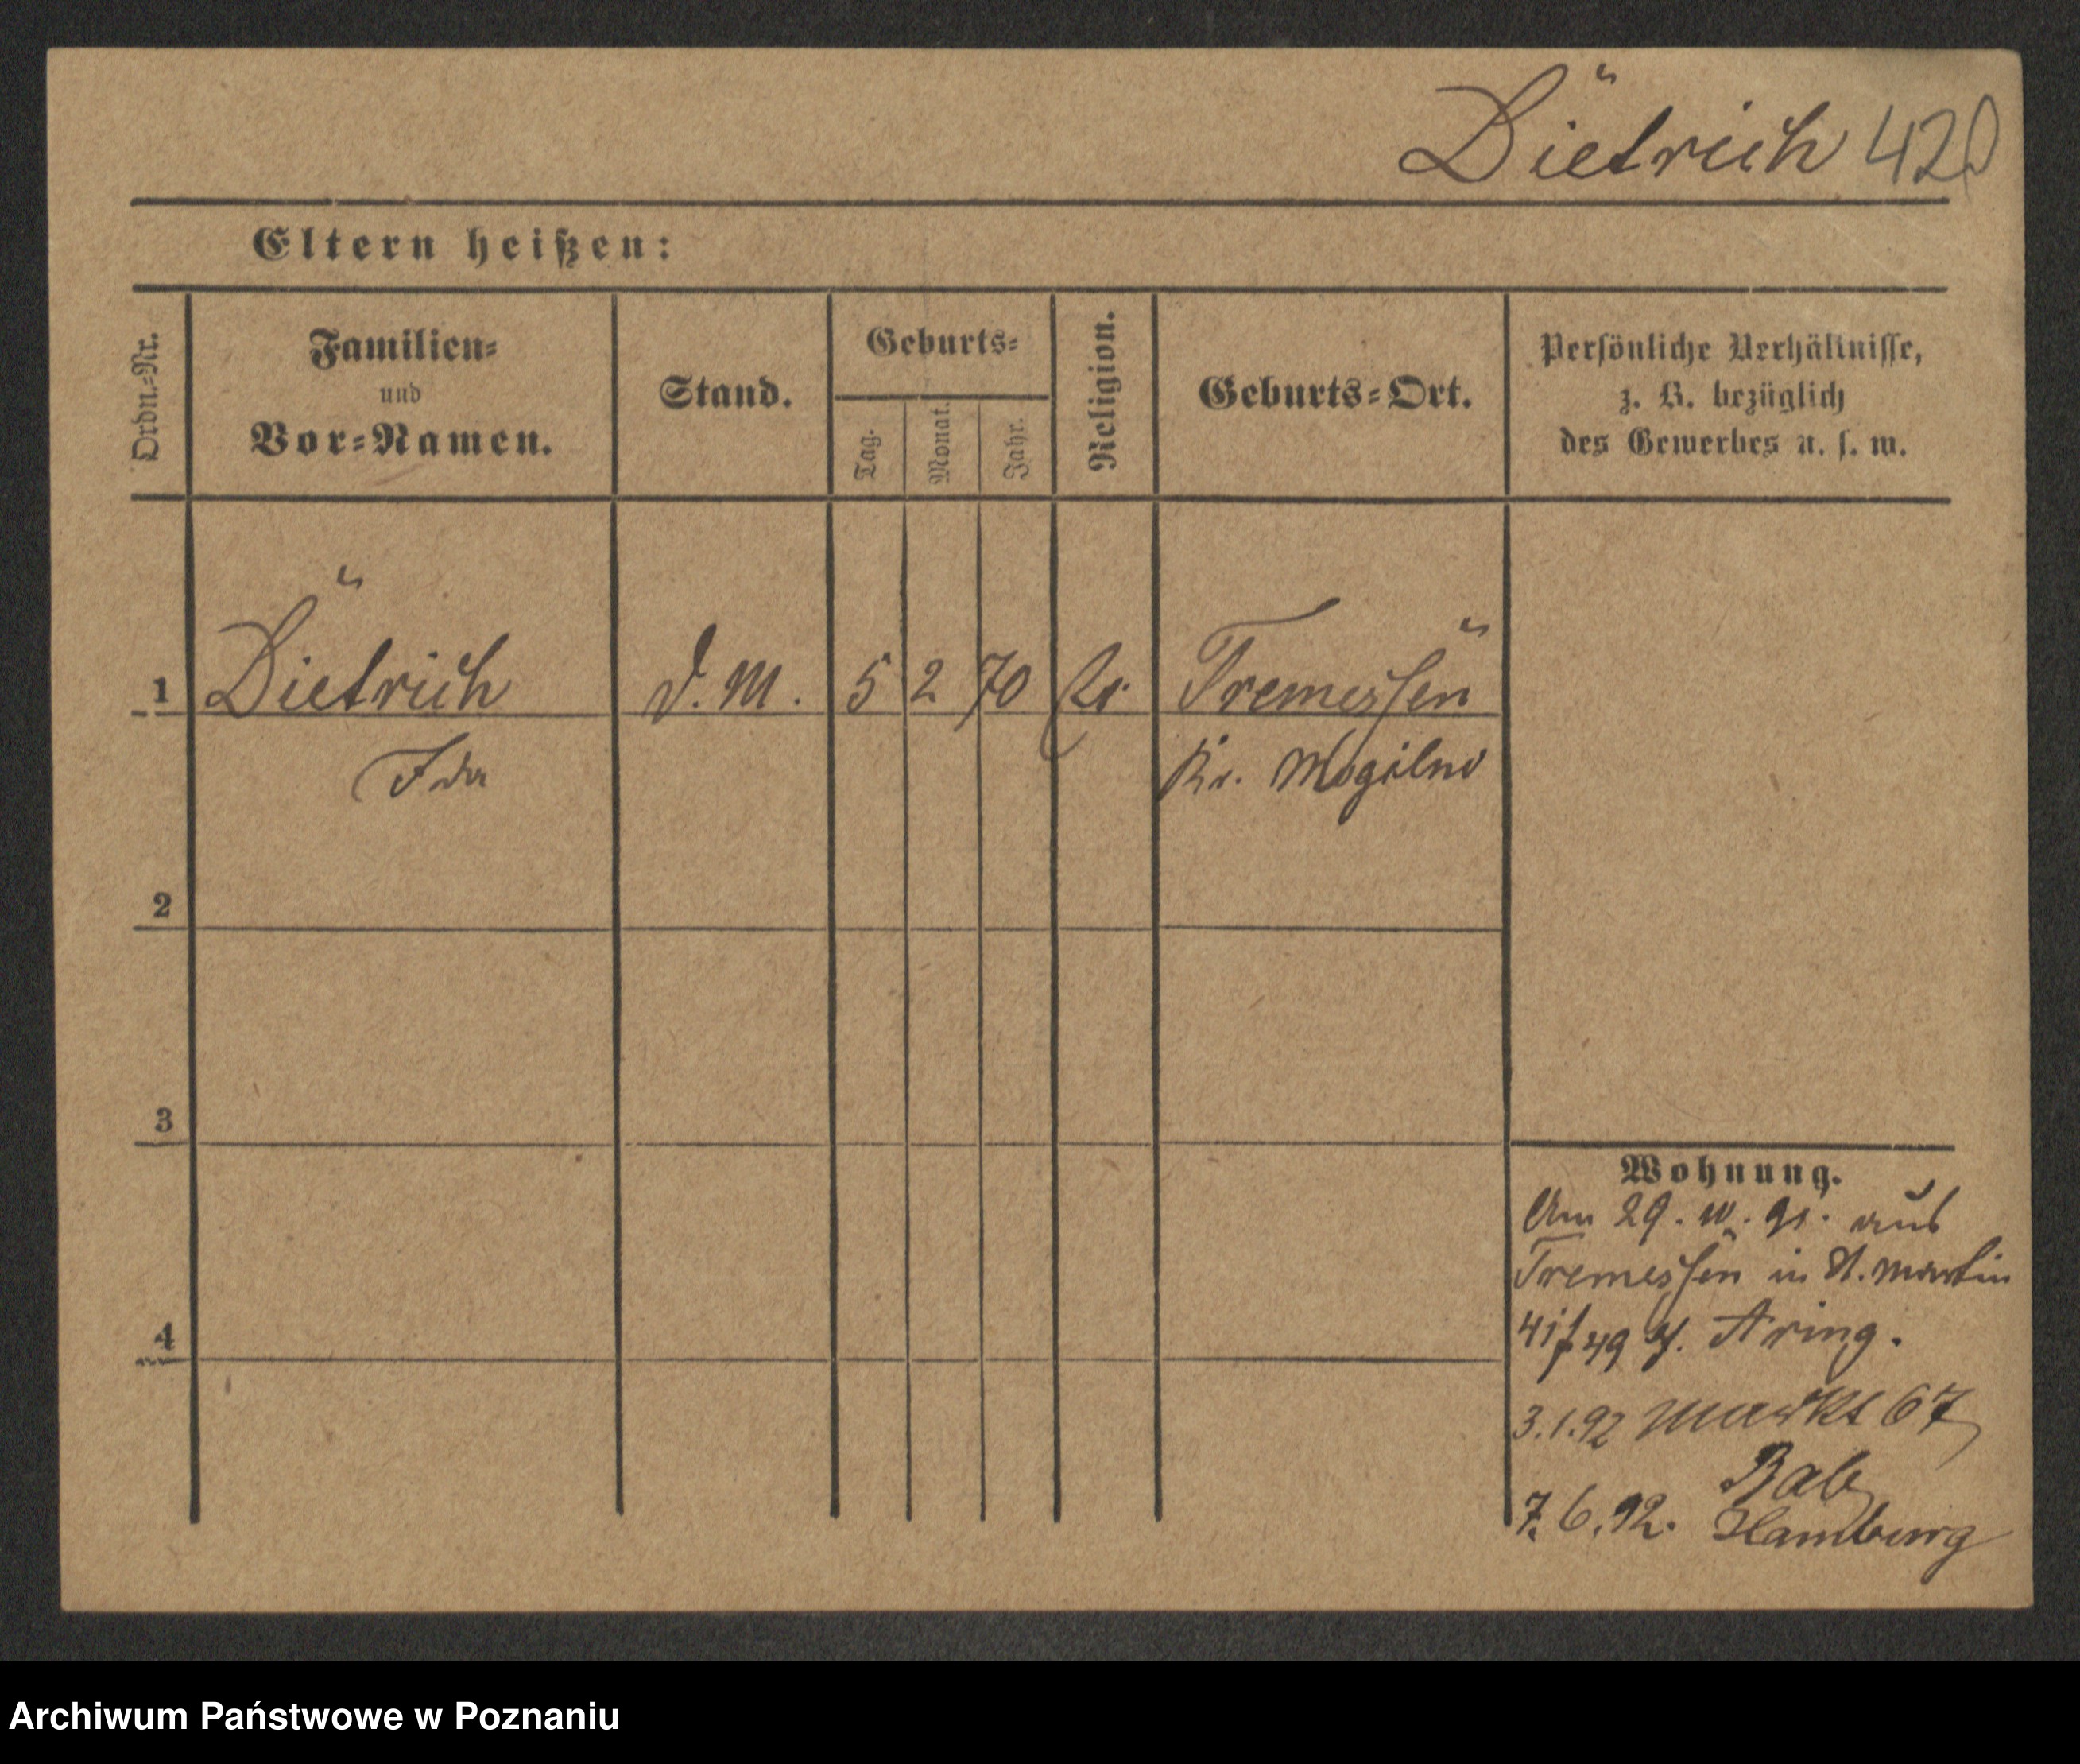 Dietrich 420
Eltern heißen:
Ordn.-Nr.
Familien-
und
Vor-Namen.
Stand.
Geburts-
Tag.
Monat.
Jahr.
Religion.
Geburts-Ort.
Persönliche Verhältnisse,
z. B. bezüglich
des Gewerbes u. s. w.
1 Dietrich D. M. 5 2 70 Tremessen
Ida Kr. Mogilno
2
3
4
Wohnung.
Am 29. 91. aus
Tremessen in St. Martin
49
3.1.92 Markt 67
7.6.92. Hamburg
Archiwum Państwowe w Poznaniu